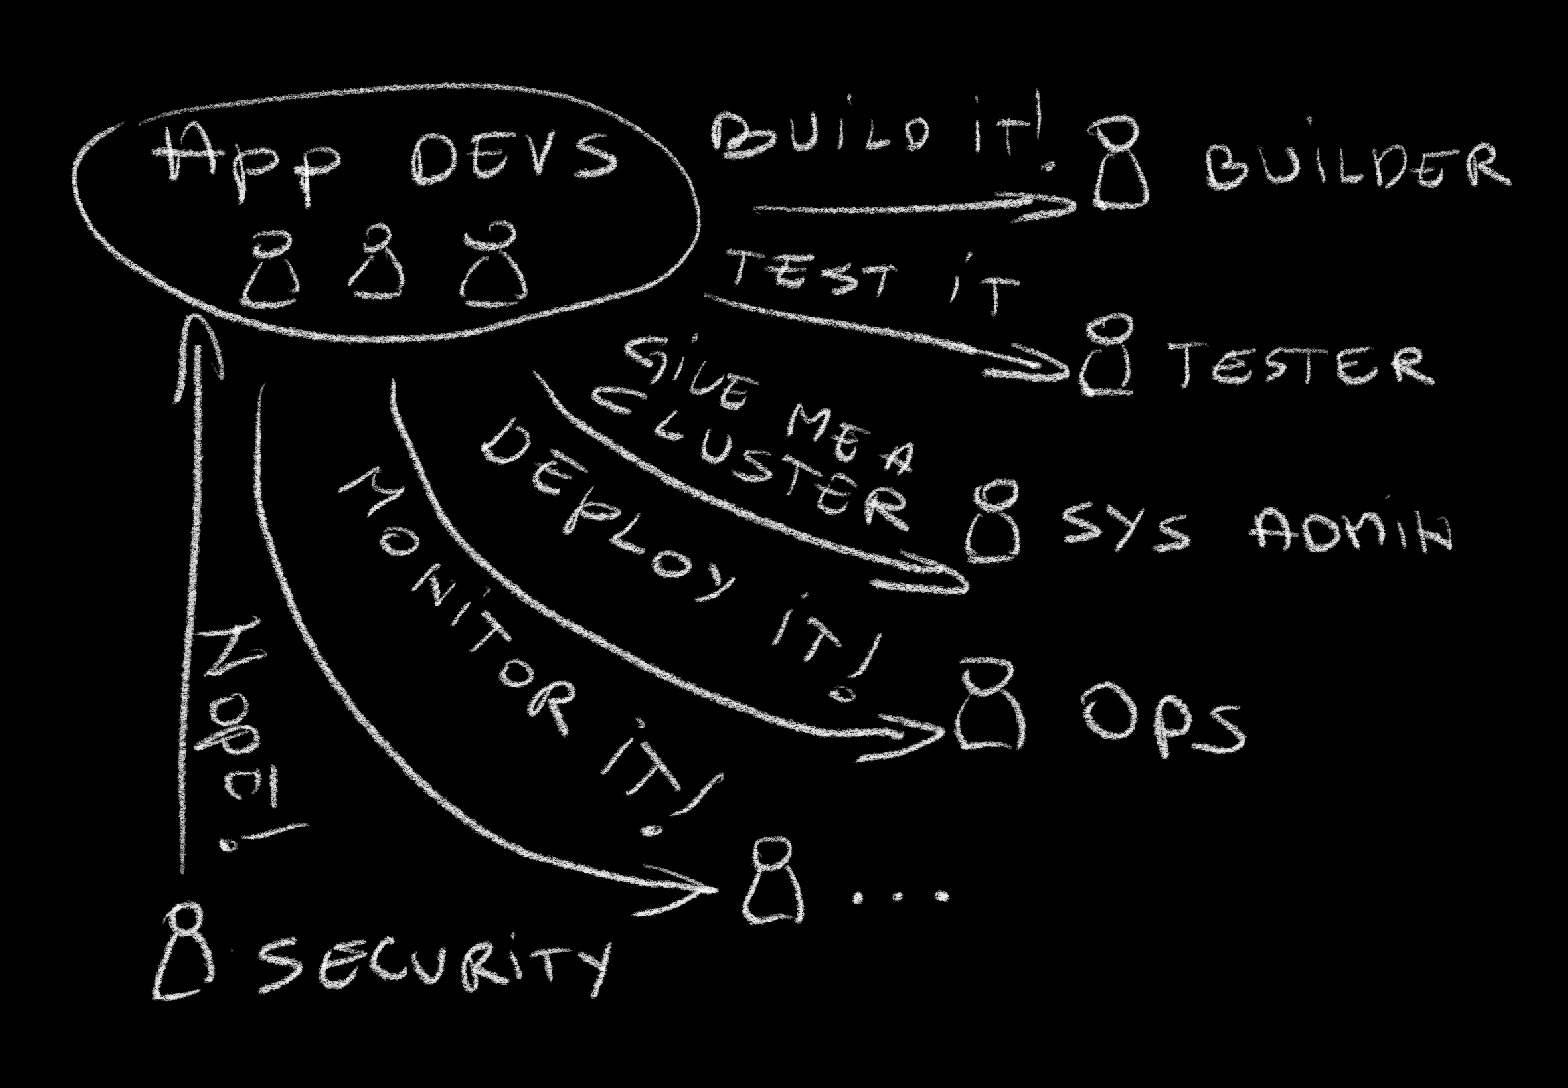 App DEVS
BUiLD iT!
BUiLDER
TEST iT
TESTER
GiVE ME A
CLUSTER
SYS ADMiN
DEPLOY iT!
OPS
MONiTOR iT!
...
NOPE!
SECURiTY